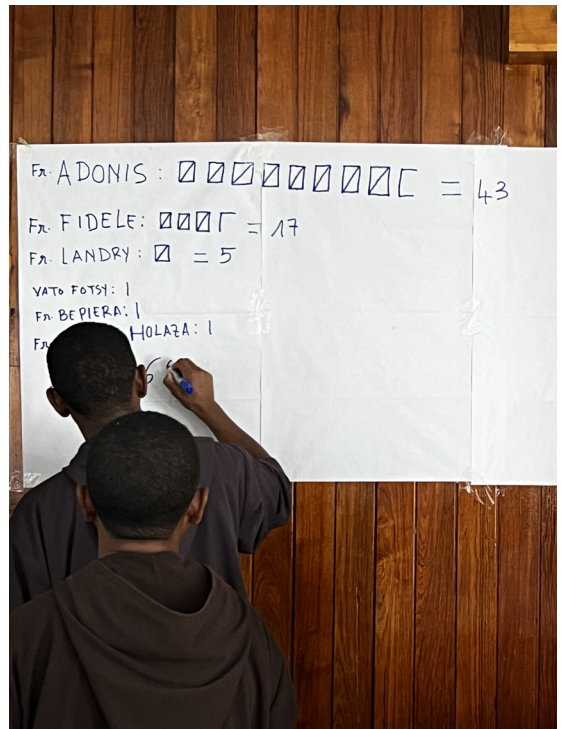 Fr. ADONIS: = 43
Fr. FIDELE: = 17
Fr. LANDRY: = 5
VATO FOTSY: |
Fr. BEPIERA: |
Fr HOLAZA: |
6